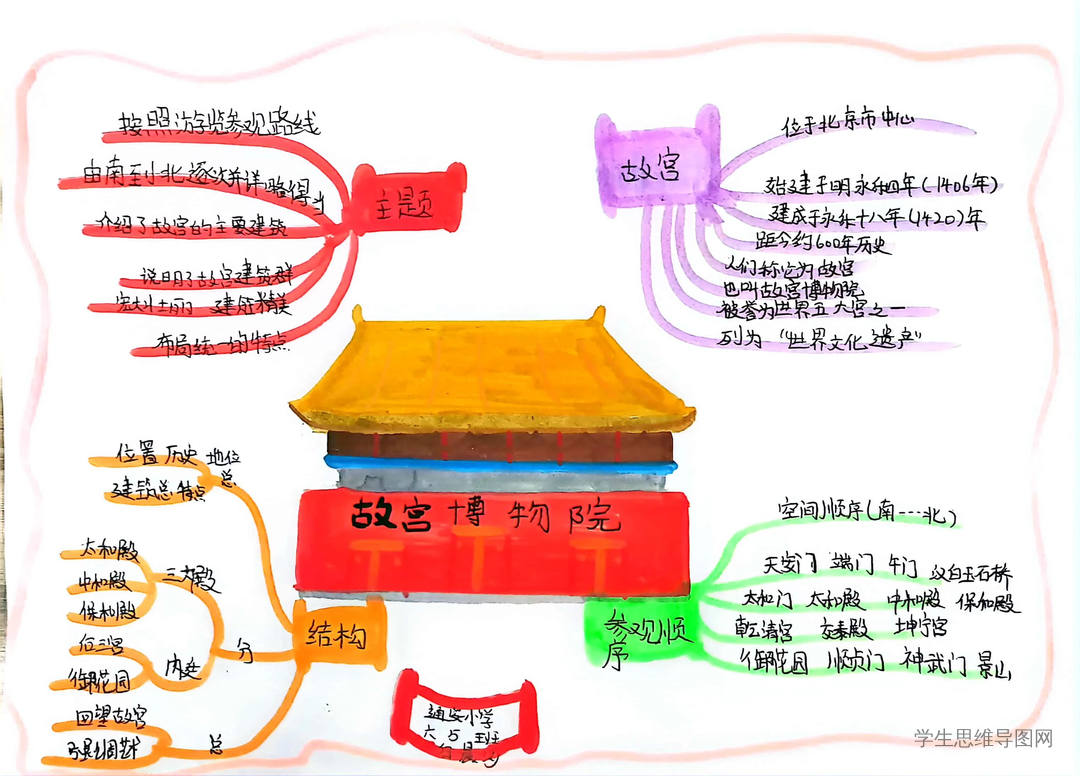 按照游览参观路线
由南至小北逐次并详略得当
介绍了故宫的主要建筑
说明了故宫建筑群
宏大壮丽 建筑精美
布局统一的特点
主题
故宫
位于北京市中心
始建于明永乐四年(1406年)
建成于永乐十八年(1420)年
距今约600年历史
人们称它为故宫
也叫故宫博物院
被誉为世界五大宫之一
列为“世界文化遗产”
故宫博物院
位置 历史 地位
建筑总特点
总
太和殿
中和殿
保和殿
三大殿
后三宫
御花园
内廷
分
回望故宫
总
结构
参观顺序
空间顺序(南---北)
天安门 端门 午门 汉白玉石桥
太和门 太和殿 中和殿 保和殿
乾清宫 交泰殿 坤宁宫
御花园 顺贞门 神武门 景山
通安小学
学生思维导图网